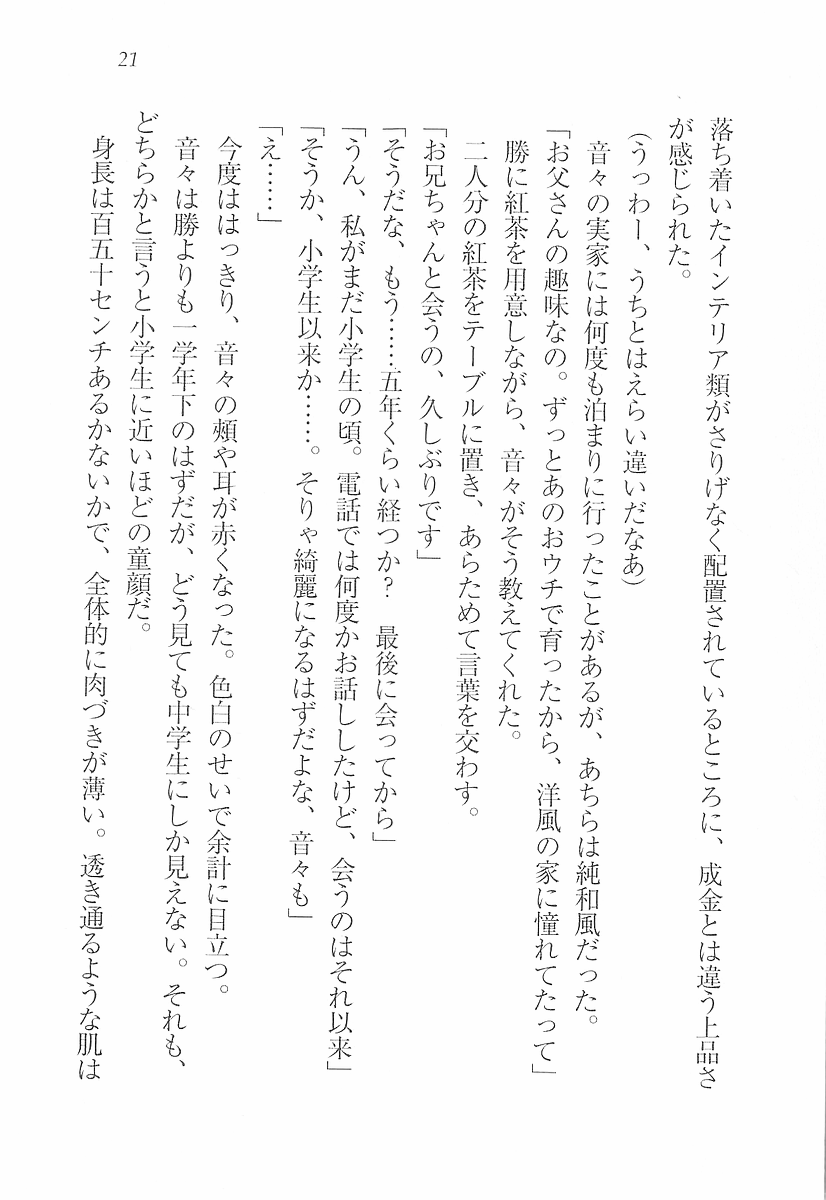 21
落ち着いたインテリア類がさりげなく配置されているところに、成金とは違う上品さ
が感じられた。
(うっわー、うちとはえらい違いだなあ)
音々の実家には何度も泊まりに行ったことがあるが、あちらは純和風だった。
「お父さんの趣味なの。ずっとあのおウチで育ったから、洋風の家に憧れてたって」
勝に紅茶を用意しながら、音々がそう教えてくれた。
二人分の紅茶をテーブルに置き、あらためて言葉を交わす。
「お兄ちゃんと会うの、久しぶりです」
「そうだな、もう……五年くらい経つか? 最後に会ってから」
「うん、私がまだ小学生の頃。電話では何度かお話ししたけど、会うのはそれ以来」
「そうか、小学生以来か……。そりゃ綺麗になるはずだよな、音々も」
「え……」
今度ははっきり、音々の頰や耳が赤くなった。色白のせいで余計に目立つ。
音々は勝よりも一学年下のはずだが、どう見ても中学生にしか見えない。それも、
どちらかと言うと小学生に近いほどの童顔だ。
身長は百五十センチあるかないかで、全体的に肉づきが薄い。透き通るような肌は